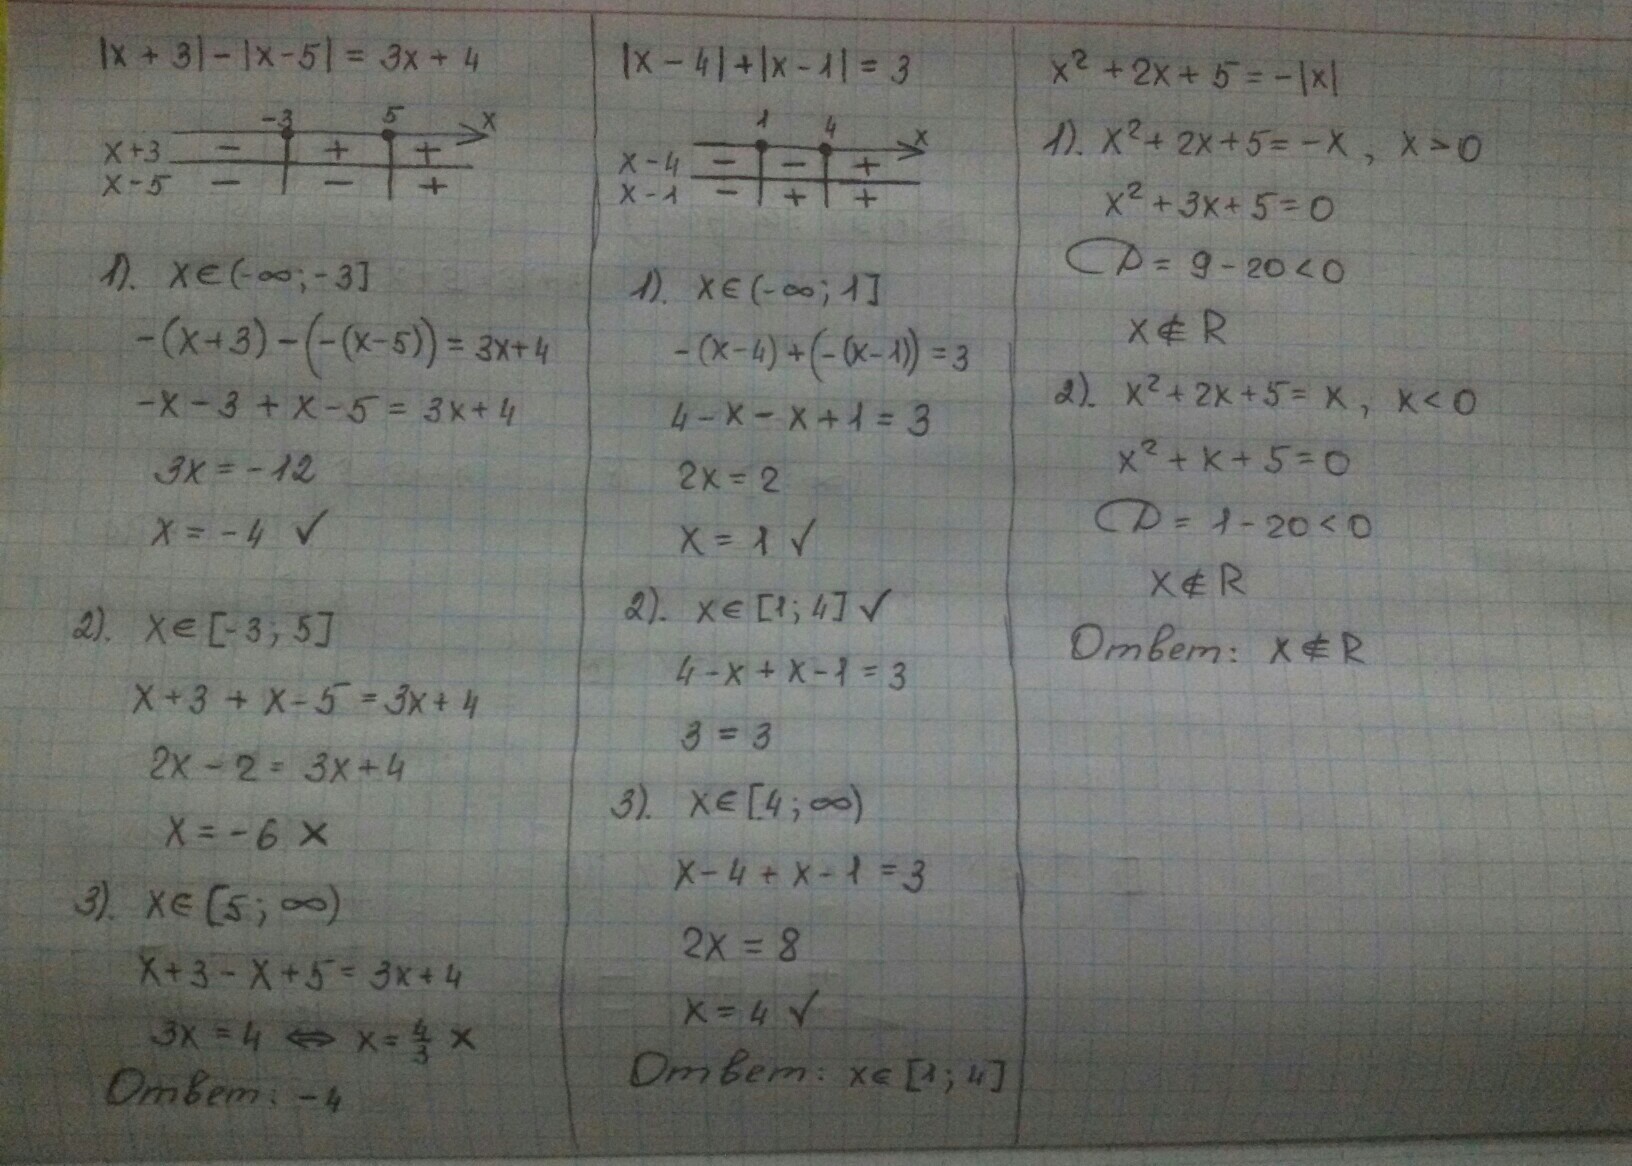 |x + 3| - |x - 5| = 3x + 4
-3 5 x
x+3 - + +
x-5 - - +
1). x∈(-∞; -3]
-(x+3) - (-(x-5)) = 3x+4
-x - 3 + x - 5 = 3x+4
3x = -12
x = -4 ✓
2). x∈[-3; 5]
x+3 + x-5 = 3x+4
2x - 2 = 3x+4
x = -6 ×
3). x∈[5; ∞)
x+3 - x+5 = 3x+4
3x = 4 ⇔ x = 4/3 ×
Ответ: -4
|x - 4| + |x - 1| = 3
1 4 x
x-4 - - +
x-1 - + +
1). x∈(-∞; 1]
-(x-4) + (-(x-1)) = 3
4 - x - x + 1 = 3
2x = 2
x = 1 ✓
2). x∈[1; 4] ✓
4-x + x-1 = 3
3 = 3
3). x∈[4; ∞)
x-4 + x-1 = 3
2x = 8
x = 4 ✓
Ответ: x∈[1; 4]
x² + 2x + 5 = -|x|
1). x² + 2x + 5 = -x, x > 0
x² + 3x + 5 = 0
D = 9 - 20 < 0
x∉R
2). x² + 2x + 5 = x, x < 0
x² + x + 5 = 0
D = 1 - 20 < 0
x∉R
Ответ: x∉R